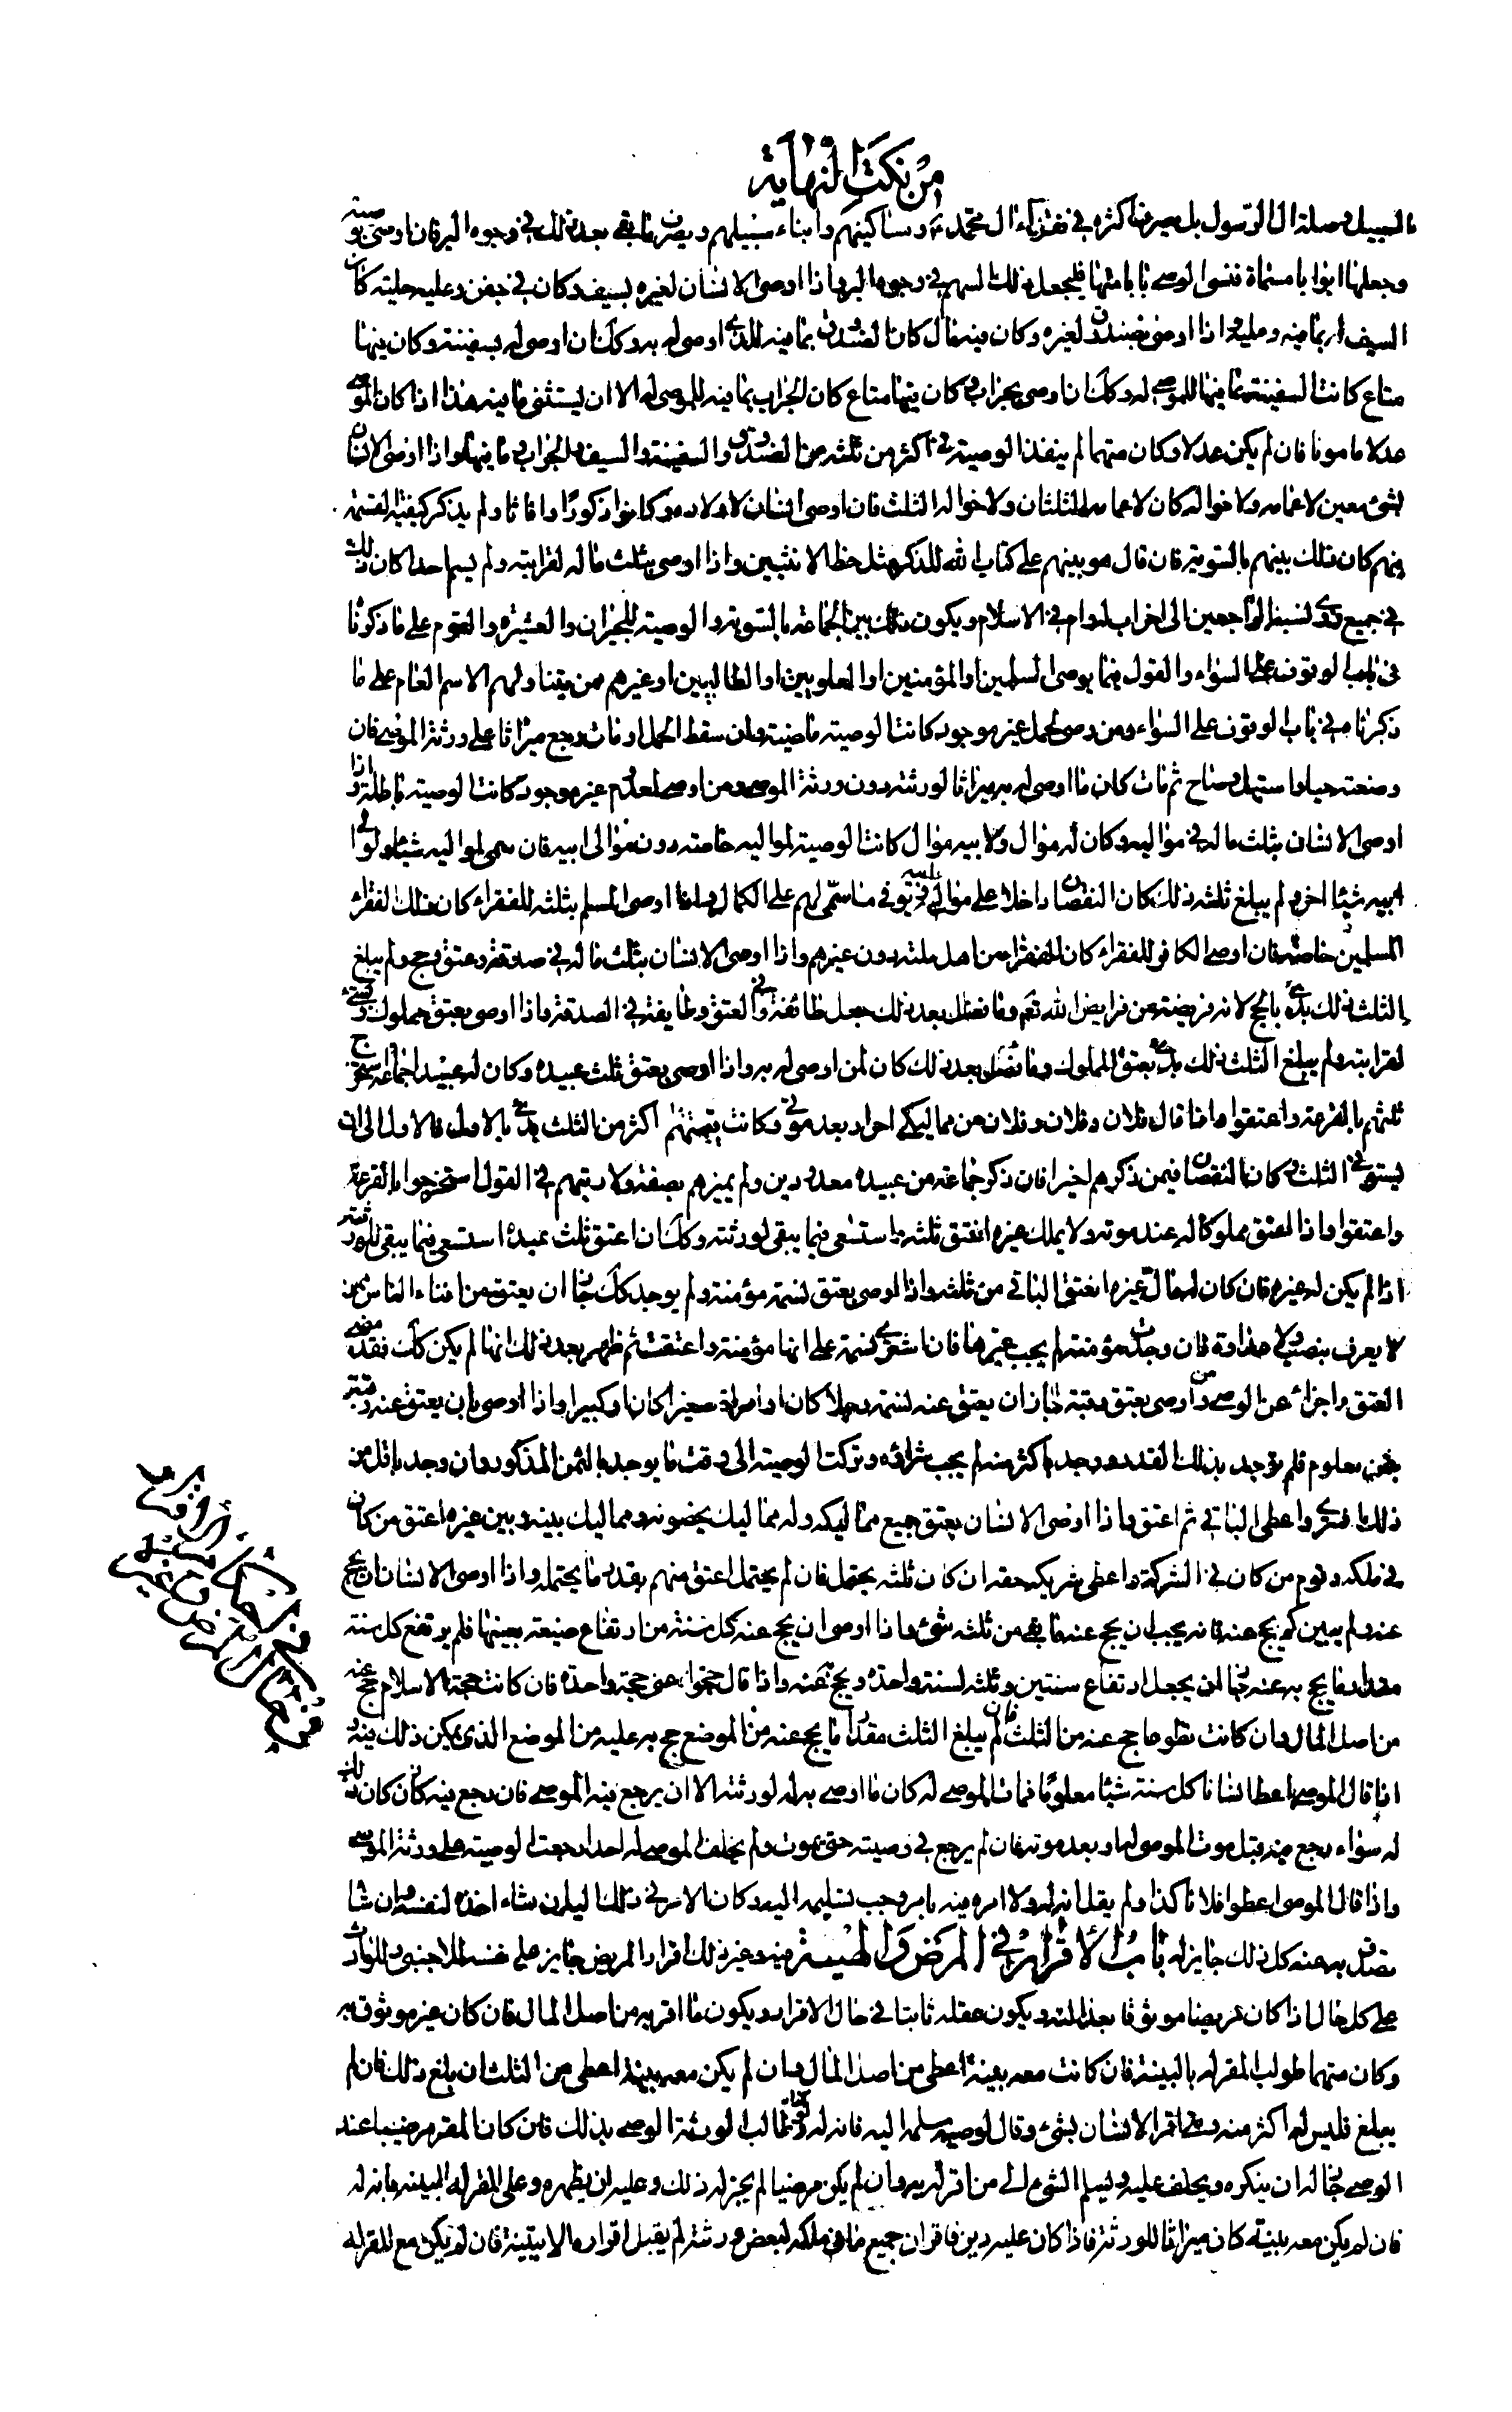 من نكت النهاية
السبيل وصلة ال الرسول بل يصرف اكثره في فقراء ال محمد ع ومساكينهم وابناء سبيلهم ويصرف ما بقى بعد ذلك في وجوه البر فان اوصى بوصية
وجعلها ابوابا مسماة فنسى الوصي بابا منها فليجعل ذلك السهم في وجوه البر واذا اوصى الانسان لغيره بسيف وكان في جفن وعليه حلية كان
السيف له بما فيه وعليه واذا اوصى بصندوق لغيره وكان فيه مال كان الصندوق بما فيه للذي اوصى له به وكك ان اوصى له بسفينة وكان فيها
متاع كانت السفينة بما فيها للموصى له وكك ان اوصى بجراب وكان فيها متاع كان الجراب بما فيه للموصى له الا ان يستثنى ما فيه هذا اذا كان الموصى
عدلا مامونا فان لم يكن عدلا وكان متهما لم ينفذ الوصية في اكثر من ثلثه من الصندوق والسفينة والسيف والجراب وما فيها واذا اوصى الانسان
بشئ معين لاعمامه ولاخواله كان لاعمامه الثلثان ولاخواله الثلث فان اوصى انسان لاولاده وكانوا ذكورا واناثا ولم يذكر كيفية القسمة
بينهم كان ذلك بينهم بالسوية فان قال هو بينهم على كتاب الله للذكر مثل حظ الانثيين واذا اوصى بثلث ماله لقرابته ولم يسم احدا كان ذلك
في جميع ذوى نسبه الراجعين الى اخر اب له وام في الاسلام ويكون ذلك بين الجماعة بالسوية والوصية للجيران والعشيرة والقوم على ما ذكرنا
في باب الوقوف على السواء والقول فيما يوصى للمسلمين او المؤمنين او العلويين او الطالبيين او غيرهم ممن يتناولهم الاسم العام على ما
ذكرنا في باب الوقوف على السواء ومن وصى لحمل غير موجود كانت الوصية ماضية وان سقط الحمل او مات رجع ميراثا على ورثة الموصى فان
وضعته حيا واستهل وصاح ثم مات كان ما اوصى له به ميراثا لورثته دون ورثة الموصى ومن اوصى لمعدوم غير موجود كانت الوصية باطلة واذا
اوصى الانسان بثلث ماله في مواليه وكان له موال ولابيه موال كانت الوصية لمواليه خاصة دون موالى ابيه فان سمى لمواليه شيئا ولموالى
ابيه شيئا اخر ولم يبلغ ثلثه ذلك كان النقصان داخلا على موالى ابيه ويوفى ما سمى لهم على الكمال واذا اوصى المسلم بثلثه للفقراء كان ذلك لفقراء
المسلمين خاصة فان اوصى الكافر للفقراء كان للفقراء من اهل ملته دون غيرهم واذا اوصى الانسان بثلث ماله في صدقة وعتق وحج ولم يبلغ
الثلث ذلك بدئ بالحج لانه فريضة من فرايض الله تعم وما فضل بعد ذلك جعل طائفة في العتق وطايفة في الصدقة واذا اوصى بعتق مملوك وبشئ
لقرابته ولم يبلغ الثلث ذلك بدئ بعتق المملوك وما فضل بعد ذلك كان لمن اوصى له به واذا اوصى بعتق ثلث عبيده وكان له عبيد جماعة استخرج
ثلثهم بالقرعة واعتقوا واذا قال فلان وفلان وفلان من مماليكى احرار بعد موتى وكانت قيمتهم اكثر من الثلث بدئ بالاول فالاول الى ان
يستوفى الثلث وكان النقصان فيمن ذكرهم اخيرا فان ذكر جماعة من عبيده معدودين ولم يميزهم بصفة ولا رتبهم في القول استخرجوا بالقرعة
واعتقوا واذا اعتق مملوكا له عند موته ولا يملك غيره انعتق ثلثه واستسعى فيما يبقى لورثته وكك ان اعتق ثلث عبده استسعى فيما يبقى للورثة
اذا لم يكن له غيره فان كان له مال غيره انعتق الباقي من ثلثه واذا اوصى بعتق نسمة مؤمنة ولم يوجد كك جاز ان يعتق من افناء الناس ممن
لا يعرف بنصب ولا عداوة فان وجدت مؤمنة لم يجب غيرها فان اشترى نسمة على انها مؤمنة واعتقت ثم ظهر بعد ذلك انها لم يكن كك فقد مضى
العتق واجزاء عن الوصى ومن اوصى بعتق رقبة جاز ان يعتق عنه نسمة رجلا كان او امراة صغيرا كان او كبيرا واذا اوصى بان يعتق عنه رقبة
بثمن معلوم فلم توجد بذلك القدر ووجد باكثر منه لم يجب شراؤه وتركت الوصية الى وقت ما يوجد بالثمن المذكور وان وجد باقل من
ذلك اشترى واعطى الباقي ثم اعتق واذا اوصى الانسان بعتق جميع مماليكه وله مماليك يخصونه ومماليك بينه وبين غيره اعتق من كان
في ملكه وقوم من كان في الشركة واعطى شريكه حقه ان كان ثلثه يحتمل فان لم يحتمل اعتق منهم بقدر ما يحتمله واذا اوصى الانسان ان يحج
عنه ولم يبين كم يحج عنه فانه يجب ان يحج عنه ما بقى من ثلثه شئ واذا اوصى ان يحج عنه كل سنة من ارتفاع ضيعة بعينها فلم يرتفع كل سنة
مقدار ما يحج به عنه جاز ان يجعل ارتفاع سنتين وثلثة لسنة واحدة ويحج به عنه واذا قال حجوا عنى حجة واحدة فان كانت حجة الاسلام حج عنه
من اصل المال وان كانت تطوعا حج عنه من الثلث فان لم يبلغ الثلث مقدار ما يحج عنه من الموضع حج به عليه من الموضع الذي يمكن ذلك فيه
اذا قال الموصى اعط انسانا كل سنة شيئا معلوما فمات الموصى له كان ما اوصى به له لورثته الا ان يرجع فيه الموصى فان رجع فيه كان ذلك
له سواء رجع فيه قبل موت الموصى له او بعد موته فان لم يرجع في وصيته حتى يموت ولم يخلف الموصى له احدا رجعت الوصية على ورثة الموصى
واذا قال الموصى اعطوا فلانا كذا ولم يقل انه له ولا امره فيه بامر وجب تسليمه اليه وكان الامر في ذلك اليه ان شاء اخذه لنفسه وان شا
تصدق به عنه كل ذلك جايز له باب الاقرار في المرض والهبة فيه وغير ذلك اقرار المريض جايز على نفسه للاجنبي وللوارث
على كل حال اذا كان مريضا موثوقا بعدالته ويكون عقله ثابتا في حال الاقرار ويكون ما اقر به من اصل المال فان كان غير موثوق به
وكان متهما طولب المقر له بالبينة فان كانت معه بينة اعطى من اصل المال وان لم يكن معه بينة اعطى من الثلث ان بلغ ذلك فان لم
يبلغ فليس له اكثر منه ومتى اقر الانسان بشئ وقال لوصيه سلمه اليه فانه له وطالب الورثة الوصى بذلك فان كان المقر مرضيا عند
الوصى جاز له ان ينكره ويحلف عليه ويسلم الشئ الى من اقر له به وان لم يكن مرضيا لم يجز له ذلك وعليه ان يظهره وعلى المقر له البينة بانه له
فان لم يكن معه بينة كان ميراثا للورثة فاذا كان عليه دين فاقر ان جميع ما في ملكه لبعض ورثته لم يقبل اقراره الا ببينة فان لم يكن مع المقر له